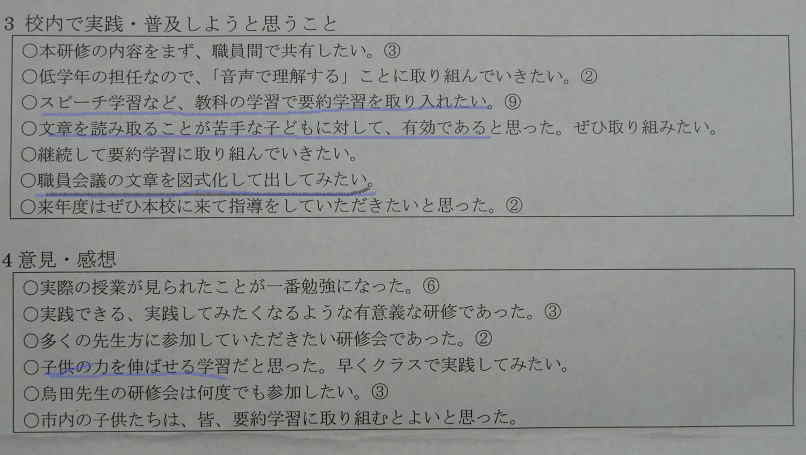 3 校内で実践・普及しようと思うこと
○本研修の内容をまず、職員間で共有したい。③
○低学年の担任なので、「音声で理解する」ことに取り組んでいきたい。②
○スピーチ学習など、教科の学習で要約学習を取り入れたい。⑨
○文章を読み取ることが苦手な子どもに対して、有効であると思った。ぜひ取り組みたい。
○継続して要約学習に取り組んでいきたい。
○職員会議の文章を図式化して出してみたい。
○来年度はぜひ本校に来て指導をしていただきたいと思った。②
4 意見・感想
○実際の授業が見られたことが一番勉強になった。⑥
○実践できる、実践してみたくなるような有意義な研修であった。③
○多くの先生方に参加していただきたい研修会であった。②
○子供の力を伸ばせる学習だと思った。早くクラスで実践してみたい。
○鳥田先生の研修会は何度でも参加したい。③
○市内の子供たちは、皆、要約学習に取り組むとよいと思った。